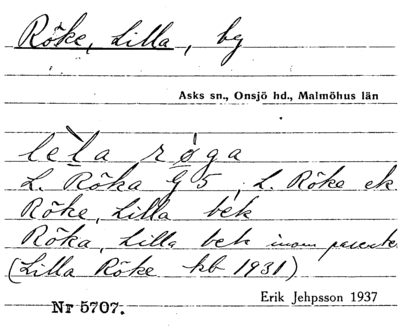 Röke, Lilla, by
Asks sn., Onsjö hd., Malmöhus län
lela røga
L. Röka G 5, L. Röke ek
Röke, Lilla bek
Röka, Lilla bek inom parentes
(Lilla Röke kb 1931)
Nr 5707. Erik Jehpsson 1937